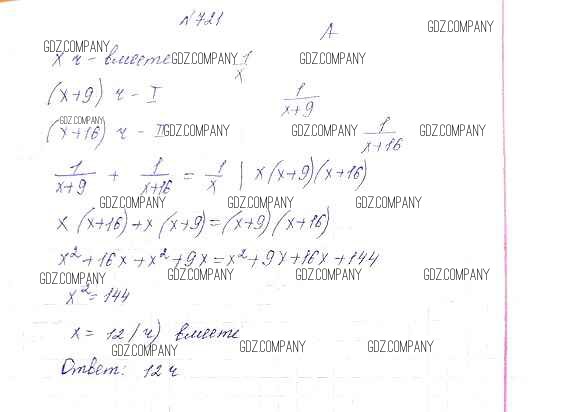 №721
A
GDZ.COMPANY GDZ.COMPANY
x ч - вместе GDZ.COMPANY 1/x GDZ.COMPANY
(x+9) ч - I 1/(x+9)
GDZ.COMPANY
(x+16) ч - II GDZ.COMPANY GDZ.COMPANY 1/(x+16) GDZ.COMPANY
1/(x+9) + 1/(x+16) = 1/x | x(x+9)(x+16)
GDZ.COMPANY GDZ.COMPANY GDZ.COMPANY
x(x+16)+x(x+9)=(x+9)(x+16)
x²+16x+x²+9x=x²+9x+16x+144
GDZ.COMPANY GDZ.COMPANY GDZ.COMPANY GDZ.COMPANY
x²=144
x = 12(ч) вместе
GDZ.COMPANY GDZ.COMPANY GDZ.COMPANY
Ответ: 12 ч